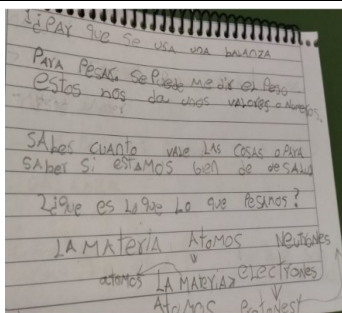 1¿PAr que se USA una BALANZA
PArA Pesar. Se Puede Medir el Peso
estos nos da unos VALores o Numeros.
SAber cuanto vale LAS COSAS o PARA
SAber Si estAMOS ben de SALUD
2¿que es Lo que Lo que Pesamos?
LA MAteriA Atomos Neutrones
atomos LA MAteriA electrones
AtoMOS Protones